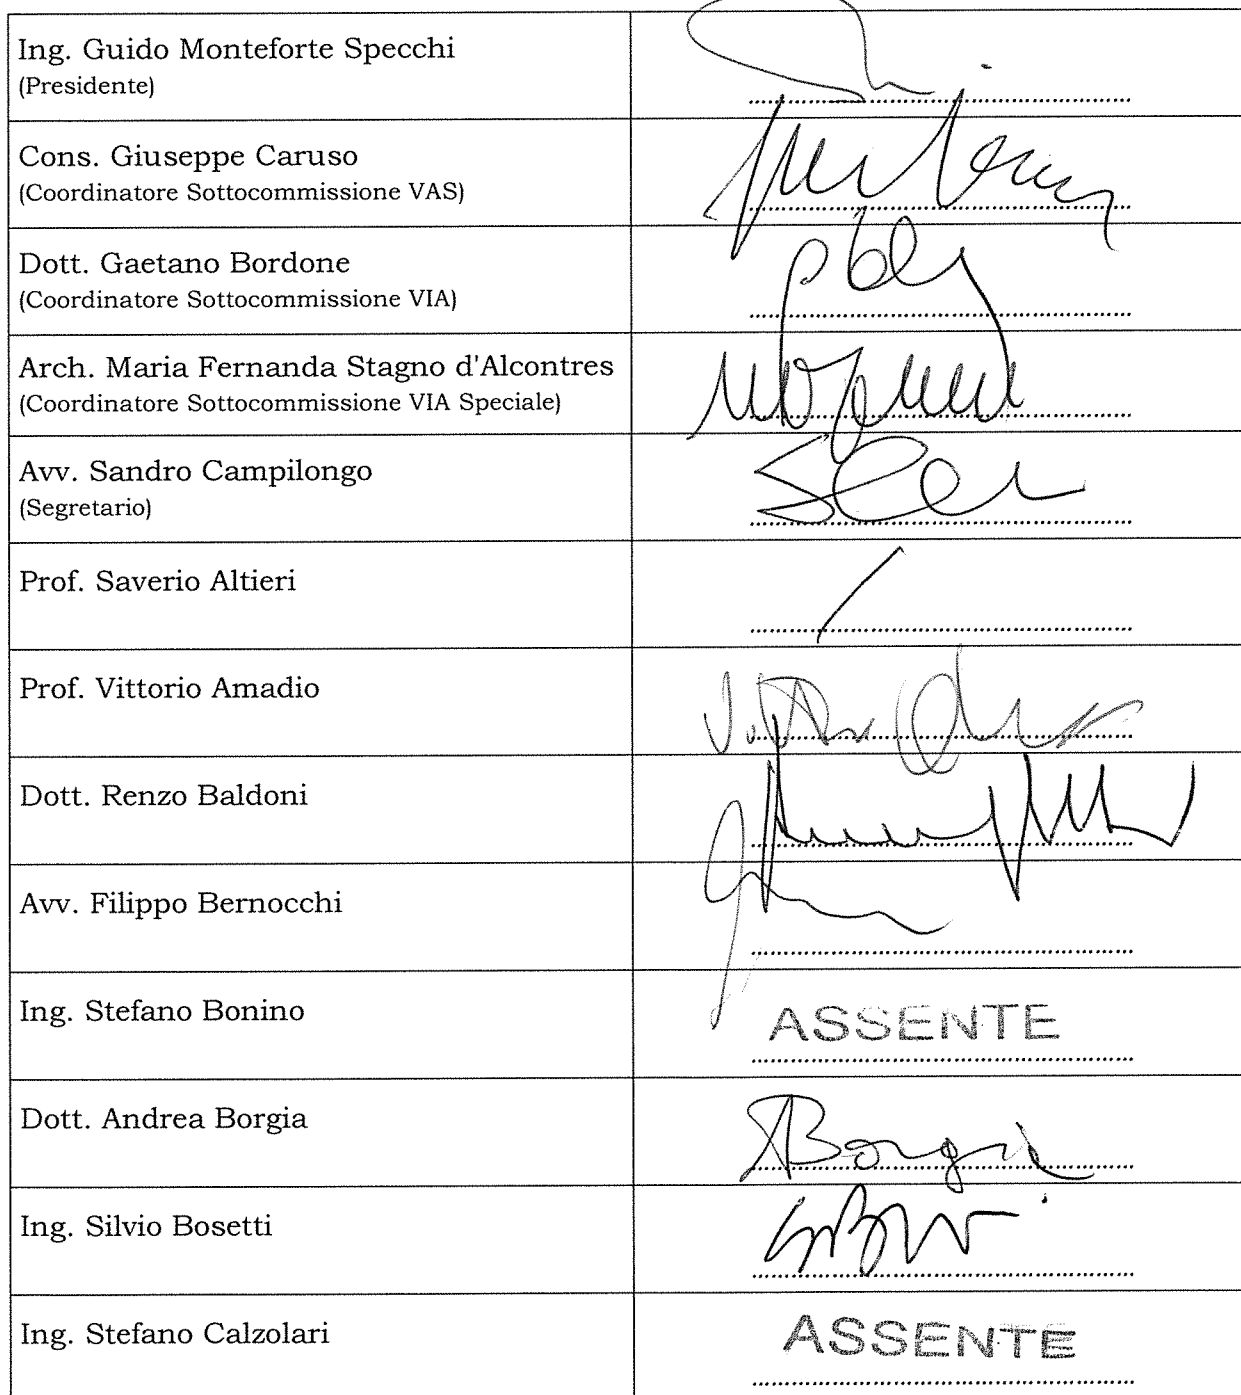 Ing. Guido Monteforte Specchi
(Presidente)
Cons. Giuseppe Caruso
(Coordinatore Sottocommissione VAS)
Dott. Gaetano Bordone
(Coordinatore Sottocommissione VIA)
Arch. Maria Fernanda Stagno d'Alcontres
(Coordinatore Sottocommissione VIA Speciale)
Avv. Sandro Campilongo
(Segretario)
Prof. Saverio Altieri
Prof. Vittorio Amadio
Dott. Renzo Baldoni
Avv. Filippo Bernocchi
Ing. Stefano Bonino
ASSENTE
Dott. Andrea Borgia
Ing. Silvio Bosetti
Ing. Stefano Calzolari
ASSENTE